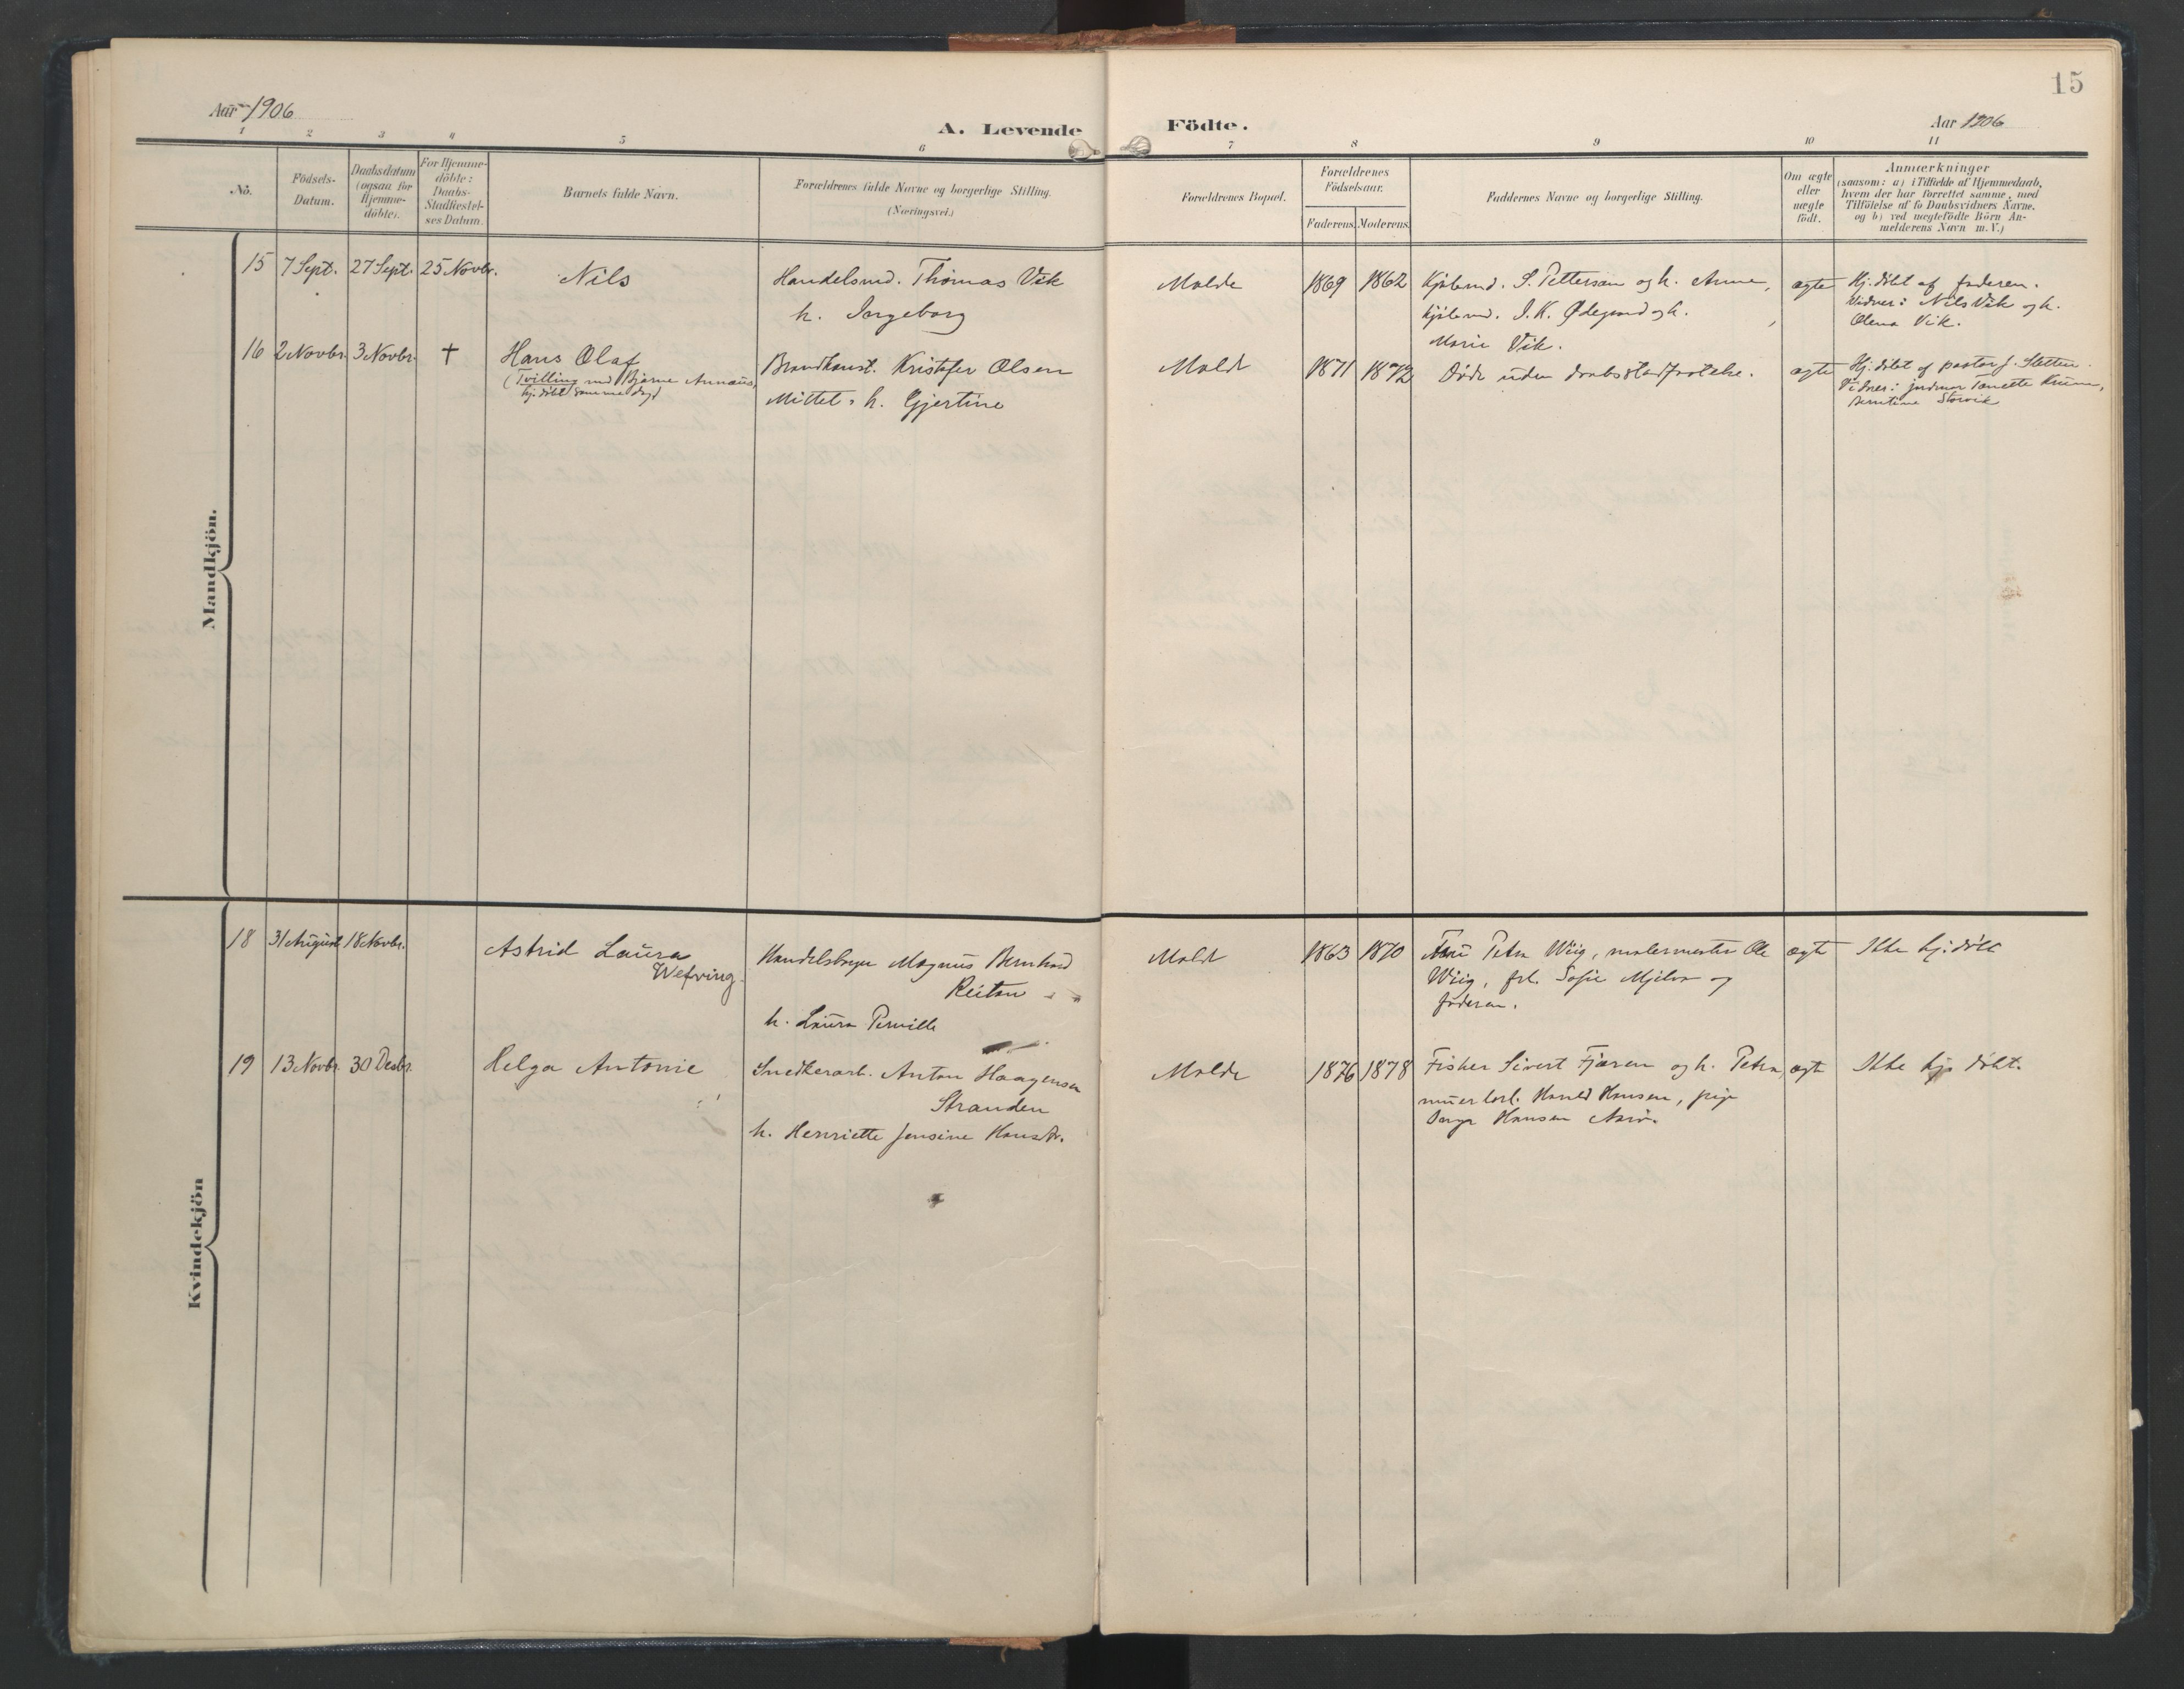 15
Aar 1906
A. Levende Födte.
Aar 1906
1 2 3 4 5 6 7 8 9 10 11
No.
Födsels-
Datum.
Daabsdatum
(ogsaa for
Hjemme-
döbte).
For Hjemme-
döbte:
Daabs-
Stadfæstel-
ses Datum.
Barnets fulde Navn.
Forældrenes fulde Navne og borgerlige Stilling.
(Næringsvei.)
Forældrenes Bopæl.
Forældrenes
Födselsaar.
Faderens. Moderens.
Faddernes Navne og borgerlige Stilling.
Om ægte
eller
uægte
födt.
Anmærkninger
(saasom: a) i Tilfælde af Hjemmedaab,
hvem der har forrettet samme, med
Tilföielse af to Daabsvidners Navne,
og b) ved uægtefödte Börn An-
melderens Navn m. V.)
Mandkjön.
15 7 Sept. 27 Sept. 25 Novbr.
Nils
Handelsmd. Thomas Vik
h. Ingeborg
Molde
1869 1862
Kjøbmd. S. Pettersen og h. Anne,
Kjøbmd. I. K. Ødegaard og h.
Marie Vik.
ægte
Hj. døbt af faderen.
Vidner: Nils Vik og h.
Olena Vik.
16 2 Novbr. 3 Novbr. †
Hans Olaf
(Tvilling med Bjarne Annæus,
hj. døbt samme dag)
Brandkonst. Kristofer Olsen
Mittet, h. Gjertine
Molde
1871 1872
Døde uden daabsstadfæstelse.
ægte
Hj. døbt af pastor J. Sletten.
Vidner: jordmor
Berntine Storvik
Kvindekjön
18 31 August 18 Novbr.
Astrid Laura
Wefring.
Handelsbager Magnus Bernhard
Reitan
h. Laura Pernille
Molde
1863 1870
Fru Petra Wiig, malermester Ole
Wiig, frk. Sofie Mjelva og
faderen.
ægte
Ikke hj. døbt
19 13 Novbr. 30 Desbr.
Helga Antonie
Snedkerarb. Anton Haagensen
Stranden
h. Henriette Jensine Hansdr.
Molde
1876 1878
Fisker Sivert Fjæren og h. Petra,
murerlærl. Harald Hansen, pige
Hansen
ægte
Ikke hj. døbt.